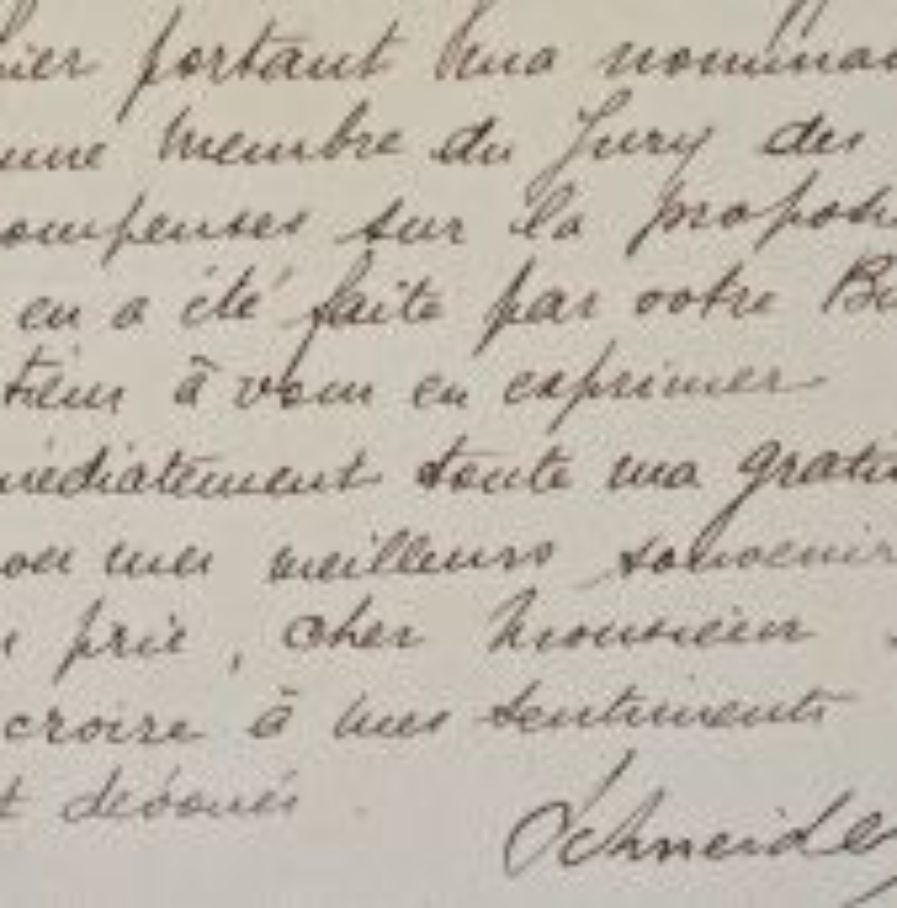 hier portant ma nominat
mme membre du Jury des
compenses sur la propositi
en a été faite par votre Bu
tiens à vous en exprimer
médiatement toute ma gratit
vec mes meilleurs souvenirs
prie, cher Monsieur
croire à mes sentiments
t dévoués
Schneider